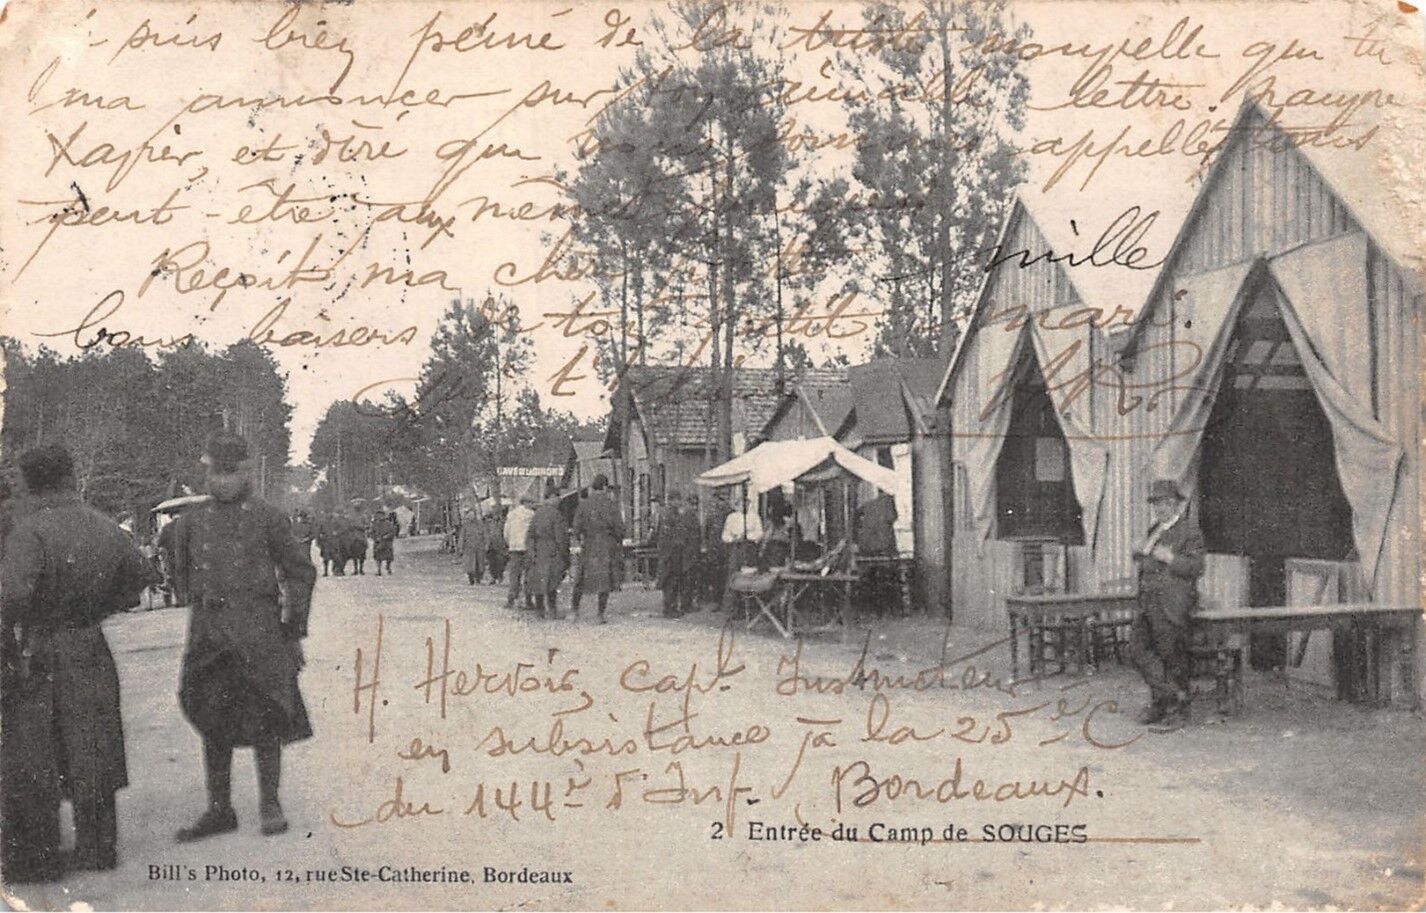 suis bien peiné de la triste nouvelle que tu
ma annoncer sur lettre. pauvre
Xavier, et dire que nous sommes appellés tous
peut-être aux même
Reçoit ma chère mille
bons baisers de ton petit mari.
qui t'
CAVE DU GIROND
H. Hervois, capl Instructeur
en subsistance à la 25e Cie
du 144e d'Inf. Bordeaux.
2 Entrée du Camp de SOUGES
Bill's Photo, 12, rue Ste-Catherine, Bordeaux